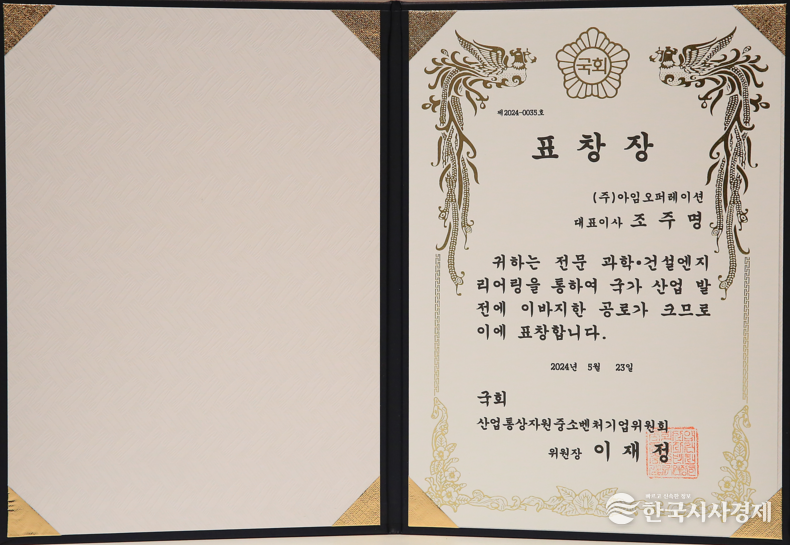 국회
제2024-0035호
표창장
(주)아임오퍼레이션
대표이사 조주명
귀하는 전문 과학·건설엔지
리어링을 통하여 국가 산업 발
전에 이바지한 공로가 크므로
이에 표창합니다.
2024년 5월 23일
국회
산업통상자원중소벤처기업위원회
위원장 이재정
빠르고 진솔한 정보
한국시사경제